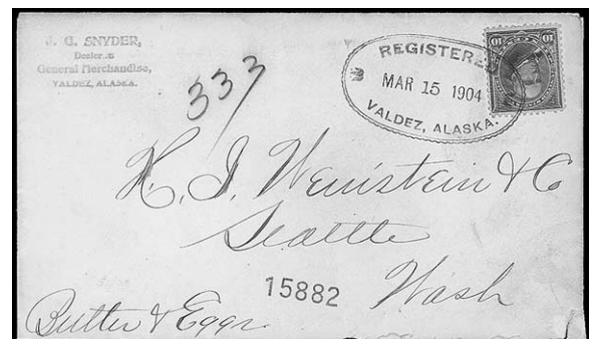 J. G. SNYDER,
Dealer in
General Merchandise,
VALDEZ, ALASKA.
333
REGISTERED
MAR 15 1904
VALDEZ, ALASKA.
10 10
H. I. Weinstein & Co
Seattle
Wash
15882
Butter & Eggs